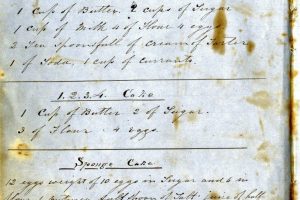 1 Cup of Butter 2 cups of Sugar
1 Cup of Milk 4 of Flour 4 eggs
2 Tea Spoonsfull of cream of Tarter
1 of Soda, 1 cup of currants.
1. 2. 3. 4. Cake
1 Cup of Butter 2 of Sugar.
3 of Flour 4 eggs.
Sponge Cake
12 eggs weight of 10 eggs in Sugar and 6 in
Spoon of Salt juice of half